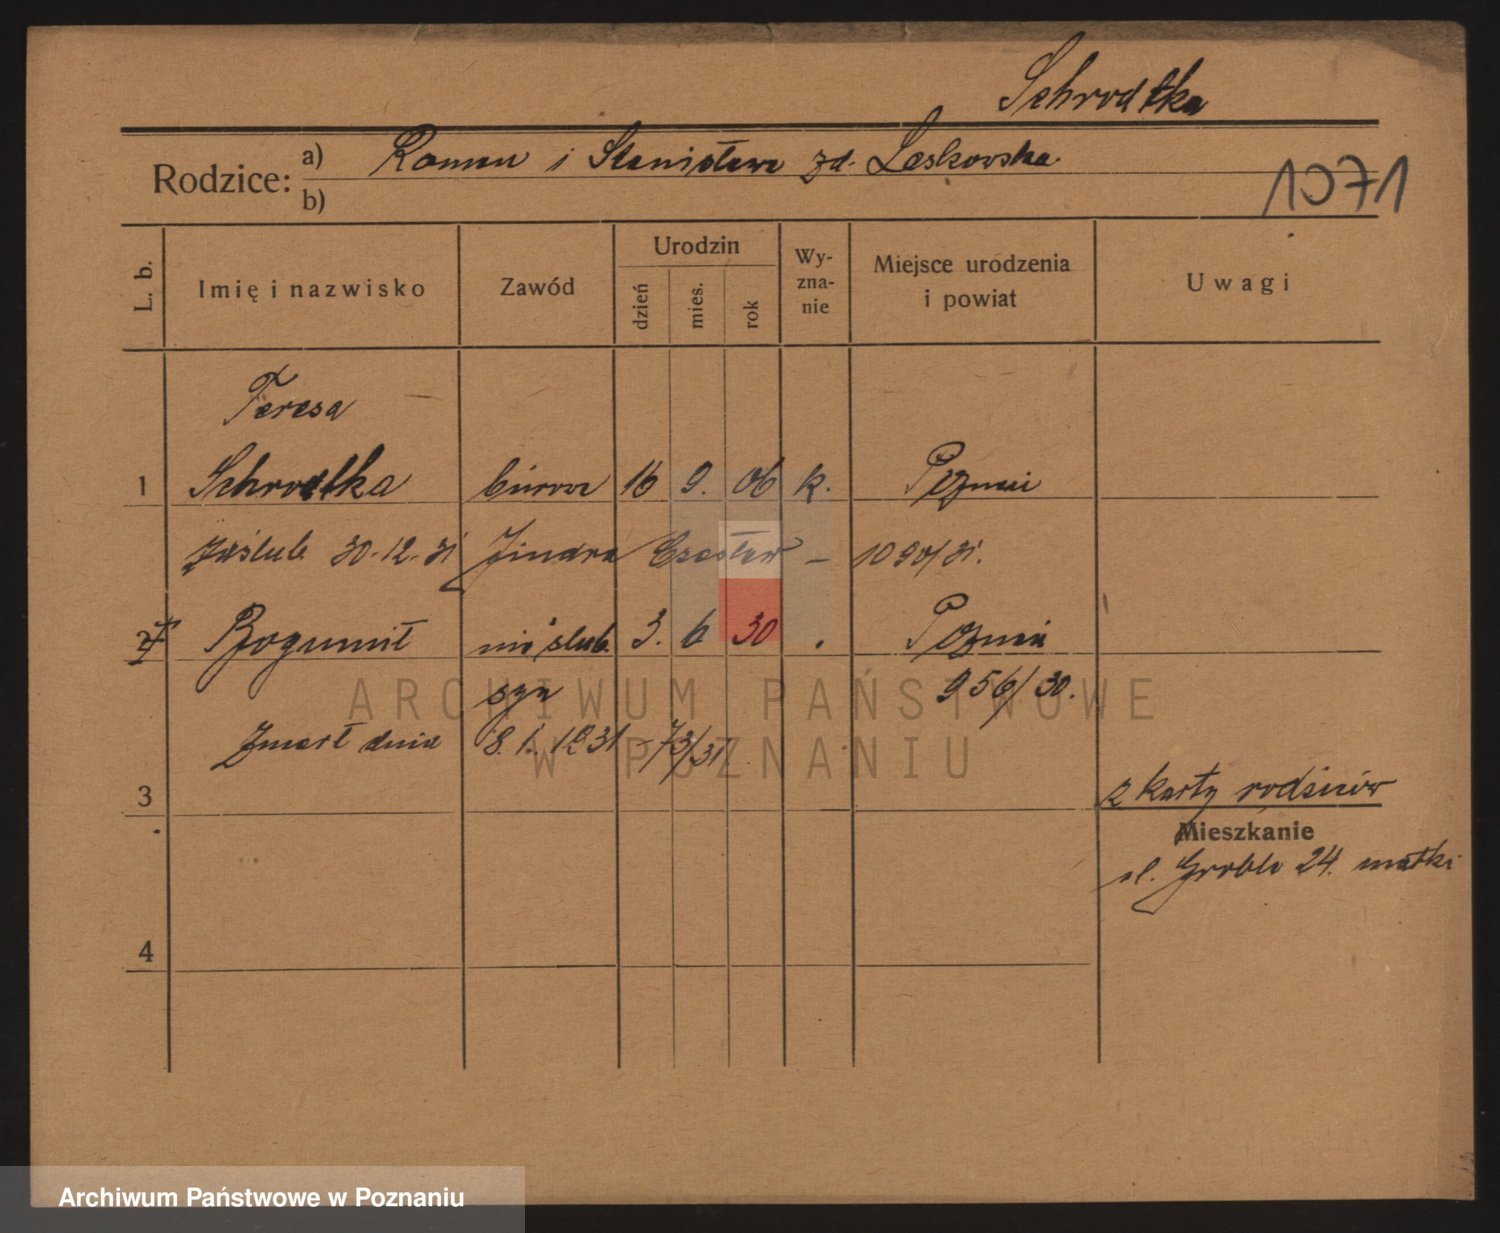 Schrodtka
Rodzice: a) Roman i Stanisława zd. Laskowska
b)
1071
L. b. Imię i nazwisko Zawód Urodzin dzień mies. rok Wy-zna-nie Miejsce urodzenia i powiat Uwagi
Teresa
1 Schrodtka biurow 16 9. 06 k. Poznań
zaślub. 30.12.31 Jindra Czesław – 1090/31.
2 Bogumił nieślub. 3. 6 30 . Poznań
syn 956/30.
Zmarł dnia 8.1.1931 – 73/31
3 z karty rodziców
Mieszkanie
ul. Grobla 24. matki
4
ARCHIWUM PAŃSTWOWE
W POZNANIU
Archiwum Państwowe w Poznaniu